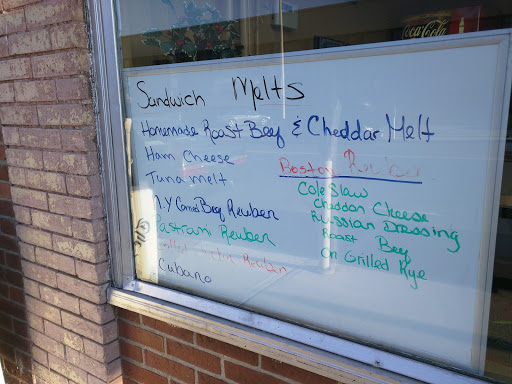 Coca-Cola
Sandwich Melts
Homemade Roast Beef & Cheddar Melt
Ham Cheese
Tuna melt
N.Y Corned Beef Reuben
Pastrami Reuben
Reuben
Cubano
Boston
Cole Slaw
Cheddar Cheese
Russian Dressing
Roast Beef
On Grilled Rye